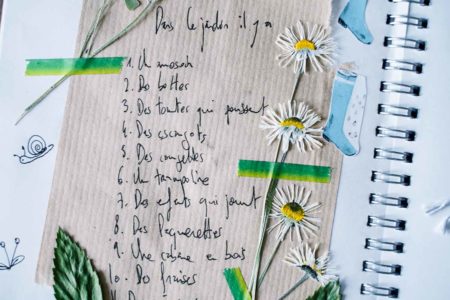 Dans le jardin il y a
1. Un
2. Des bottes
3. Des tomates qui poussent
4. Des escargots
5. Des courgettes
6. Un trampoline
7. Des enfants qui jouent
8. Des paquerettes
9. Une cabane en bois
10. Des fraises